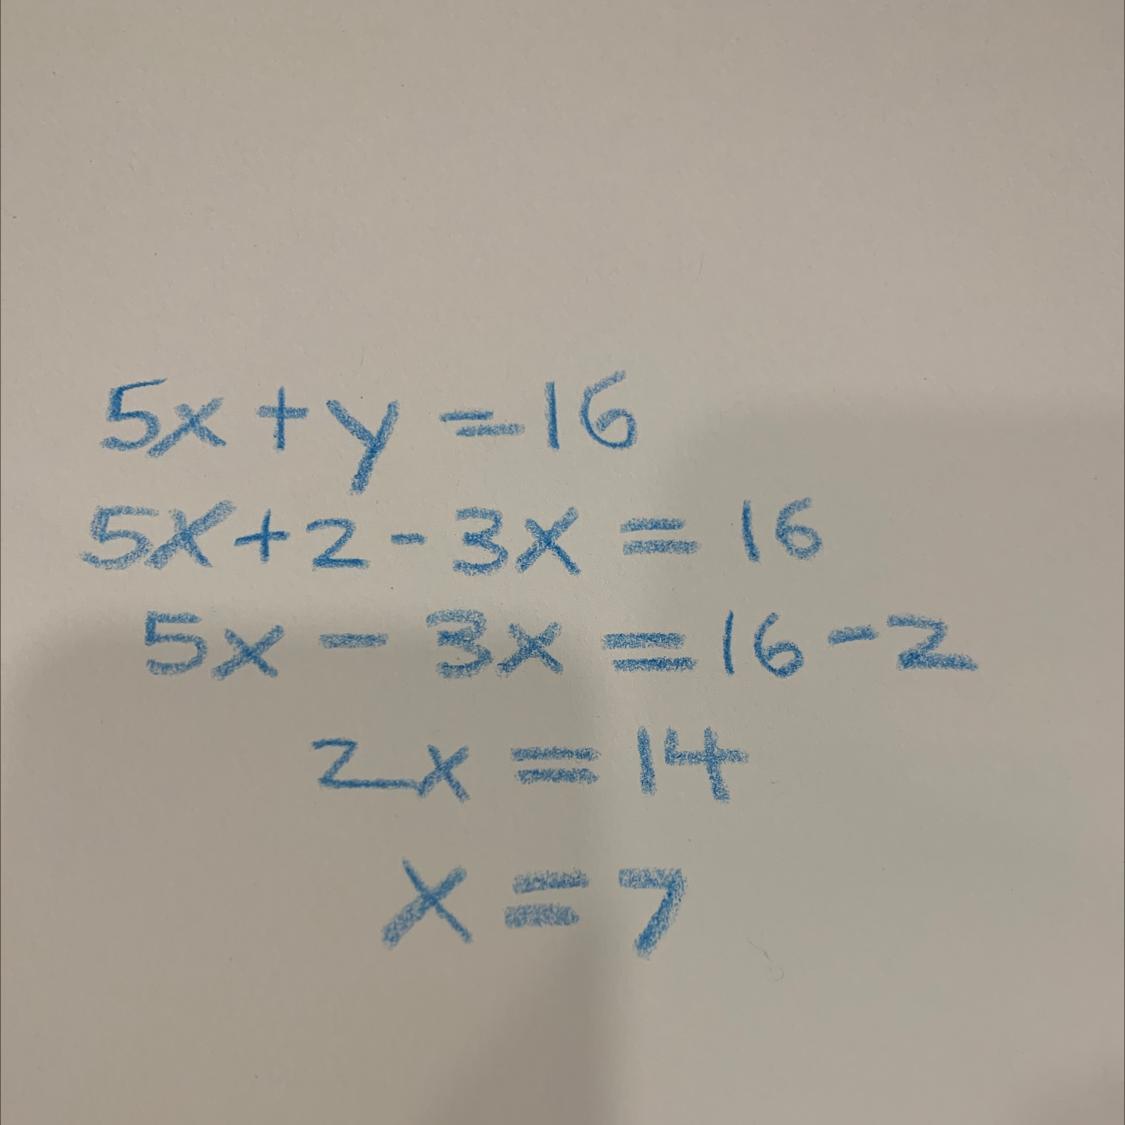 5x + y = 16
5x + 2 - 3x = 16
5x - 3x = 16 - 2
2x = 14
x = 7